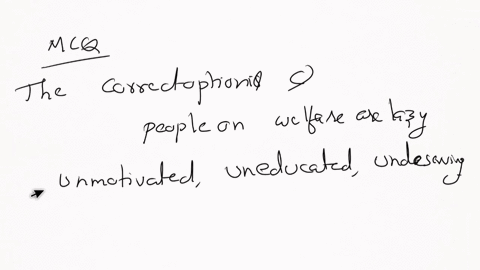 MCQ
The correct option is c)
people on welfare are lazy
unmotivated, uneducated, undeserving